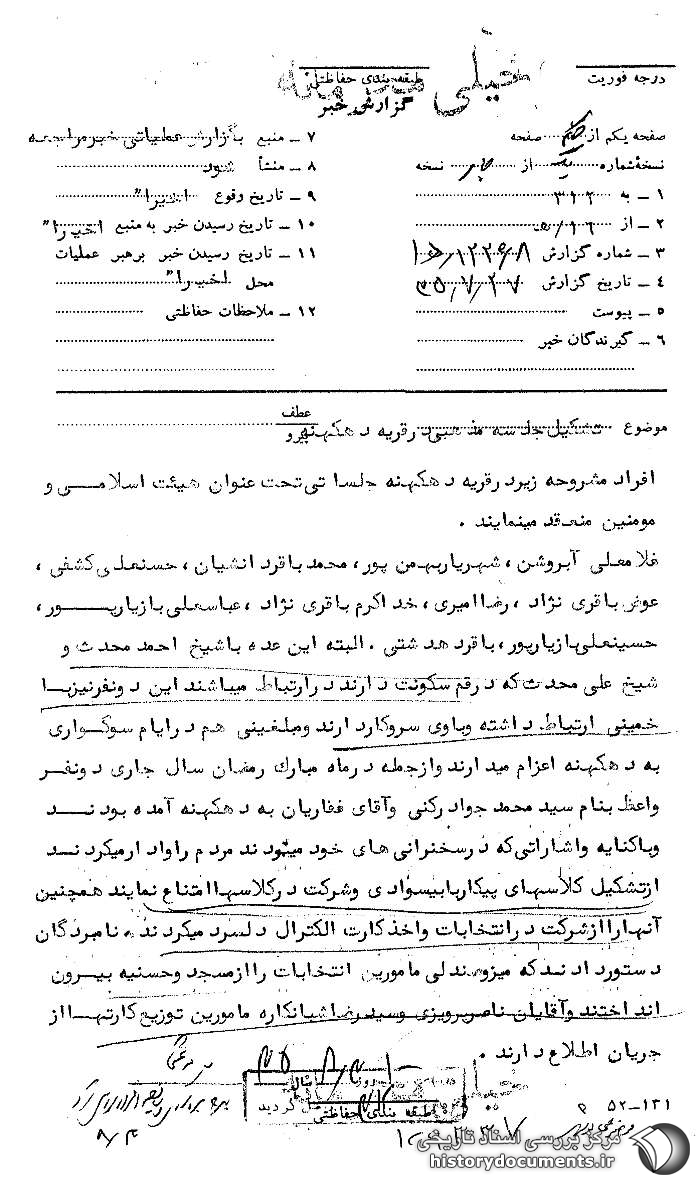 خیلی محرمانه
درجه فوریت
طبقه بندی حفاظتی
گزارش خبر
صفحه یکم از صفحه
نسخهٔ شماره یک از چهار نسخه
۱ ــ به ۳۱۲
۲ ــ از ۵/۱۶
۳ ــ شماره گزارش ۱۲۲۶۸/۱۵
۴ ــ تاریخ گزارش ۳۵/۷/۲۷
۵ ــ پیوست
۶ ــ گیرندگان خبر
۷ ــ منبع بگزارش عملیاتی خبر مراجعه
۸ ــ منشأ شود
۹ ــ تاریخ وقوع اخیرا"
۱۰ ــ تاریخ رسیدن خبر به منبع اخیرا"
۱۱ ــ تاریخ رسیدن خبر برهبر عملیات
محل اخیرا"
۱۲ ــ ملاحظات حفاظتی
موضوع تشکیل جلسه مذهبی در قریه دهکهنه
عطف
پیرو
افراد مشروحه زیر در قریه دهکهنه جلساتی تحت عنوان هیئت اسلامی و
مومنین منعقد مینمایند .
غلامعلی آبروشن ، شهریار بهمن پور، محمد باقر دانشیان ، حسنعلی کشفی ،
عوض باقری نژاد ، رضا امیری ، خداکرم باقری نژاد ، عباسعلی بازیارپور،
حسینعلی بازیارپور، باقر دهدشتی . البته این عده با شیخ احمد محدث و
شیخ علی محدث که در قم سکونت دارند در ارتباط میباشند این دو نفر نیز با
خمینی ارتباط داشته و با وی سروکار دارند و مبلغینی هم در ایام سوگواری
به دهکهنه اعزام میدارند و از جمله در ماه مبارک رمضان سال جاری دو نفر
واعظ بنام سید محمد جواد رکنی و آقای غفاریان به دهکهنه آمده بودند
و با کنایه و اشاراتی که در سخنرانی های خود مینمودند مردم را وادار میکردند
از تشکیل کلاسهای پیکار با بیسوادی و شرکت در کلاسها امتناع نمایند همچنین
آنها را از شرکت در انتخابات و اخذ کارت الکترال دلسرد میکردند . نامبردگان
دستور دادند که میز و صندلی مامورین انتخابات را از مسجد و حسنیه بیرون
انداختند و آقایان ناصر پرویزی و سید رضا شبانکاره مامورین توزیع کارتها از
جریان اطلاع دارند .
روز
سال
گردید
طبقه بندی حفاظتی
۵۲ــ۱۳۱
مرکز بررسی اسناد تاریخی
historydocuments.ir